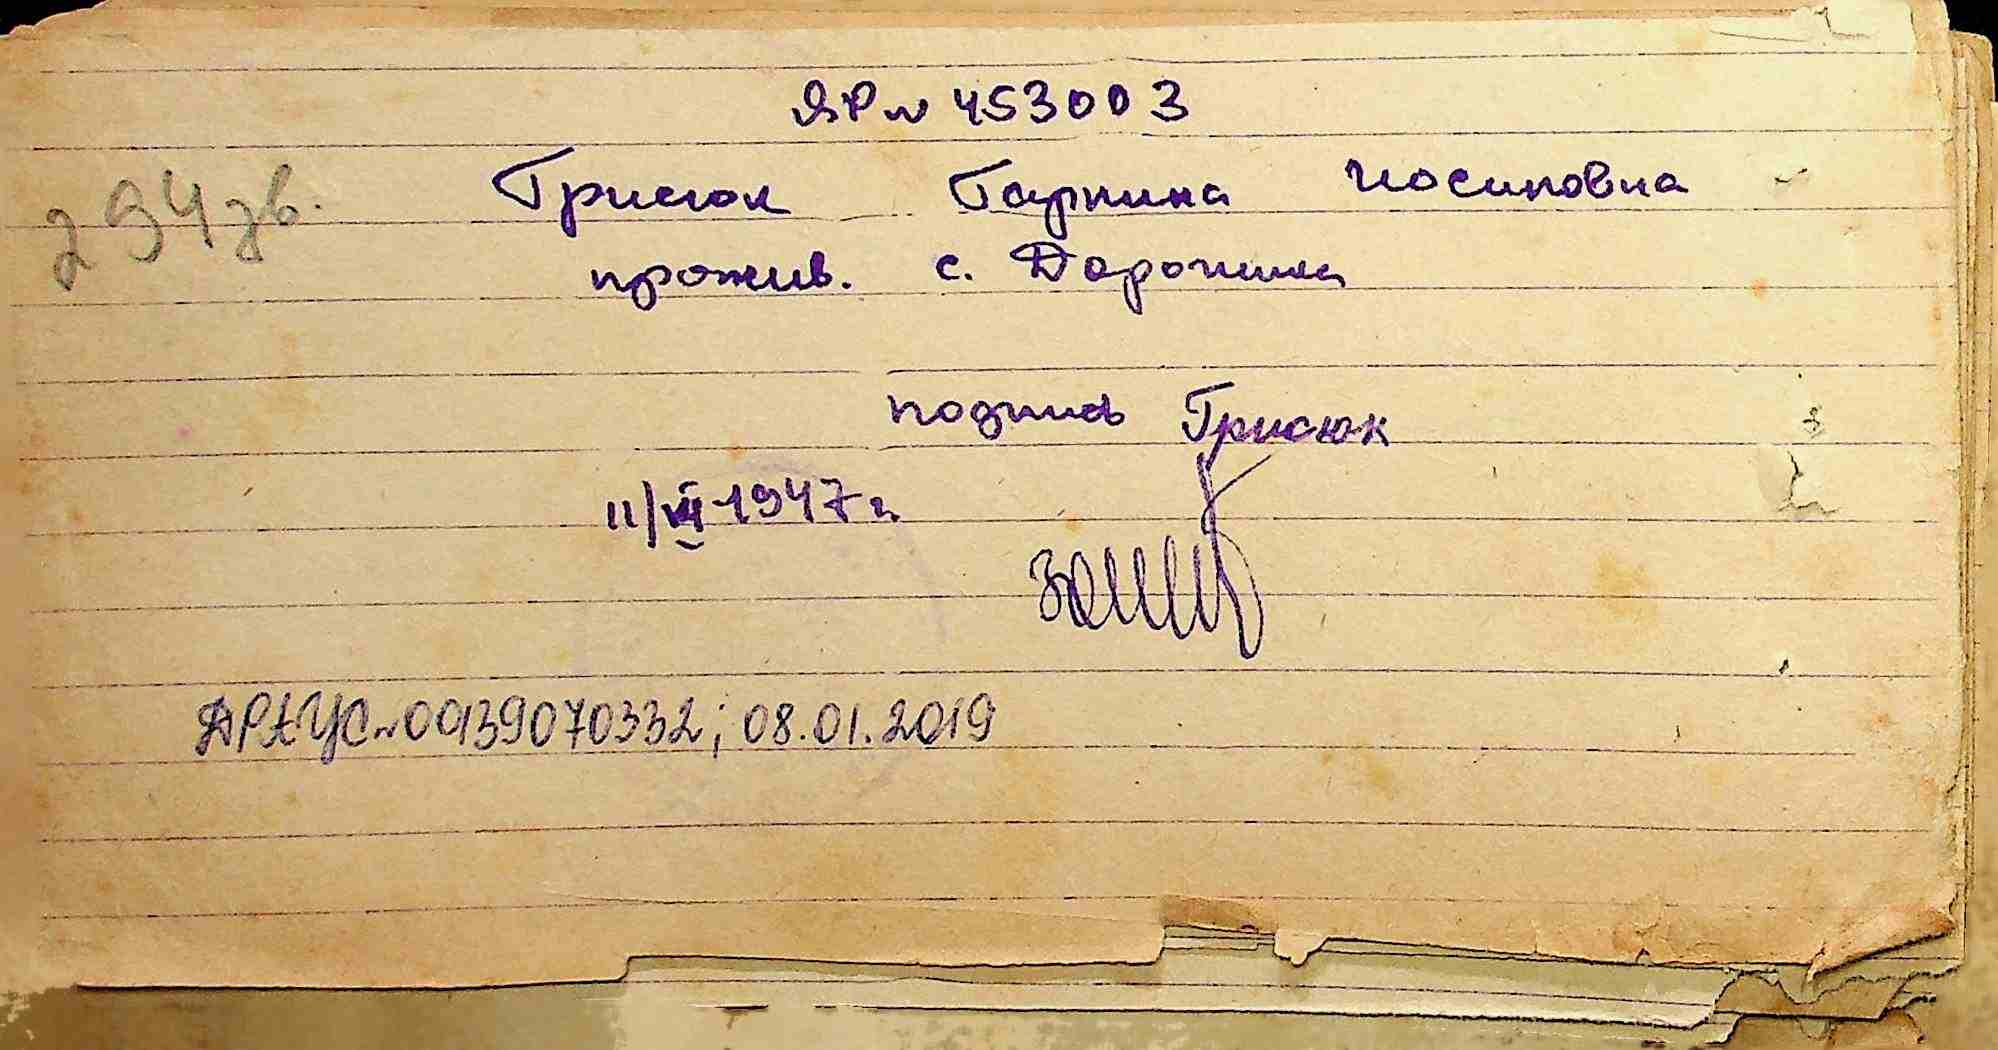 ЯР № 453003
294 зв.
Грисюк Гарпина Иосиповна
прожив. с. Доропиха
подпись Грисюк
11/VII-1947 г.
ДРАУС № 00139070332; 08.01.2019